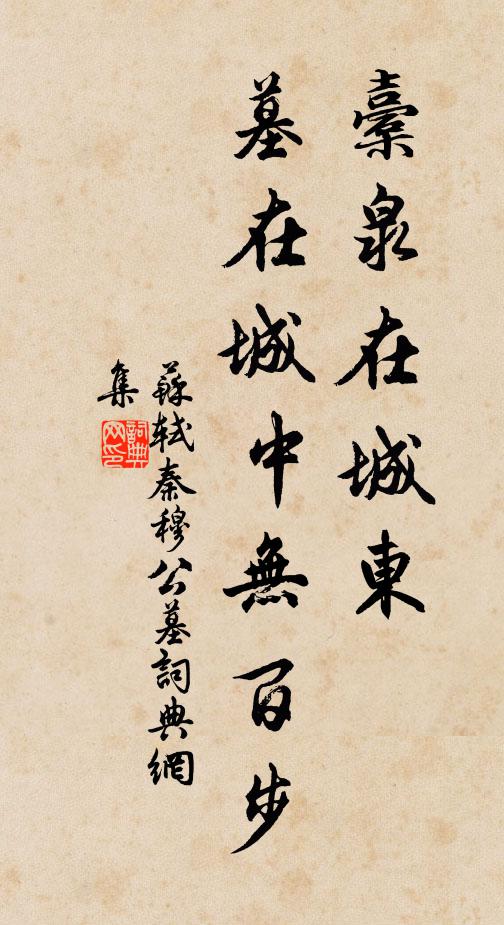 橐泉在城東
墓在城中無百步
蘇軾秦穆公墓詞典網
集
詞典
网印